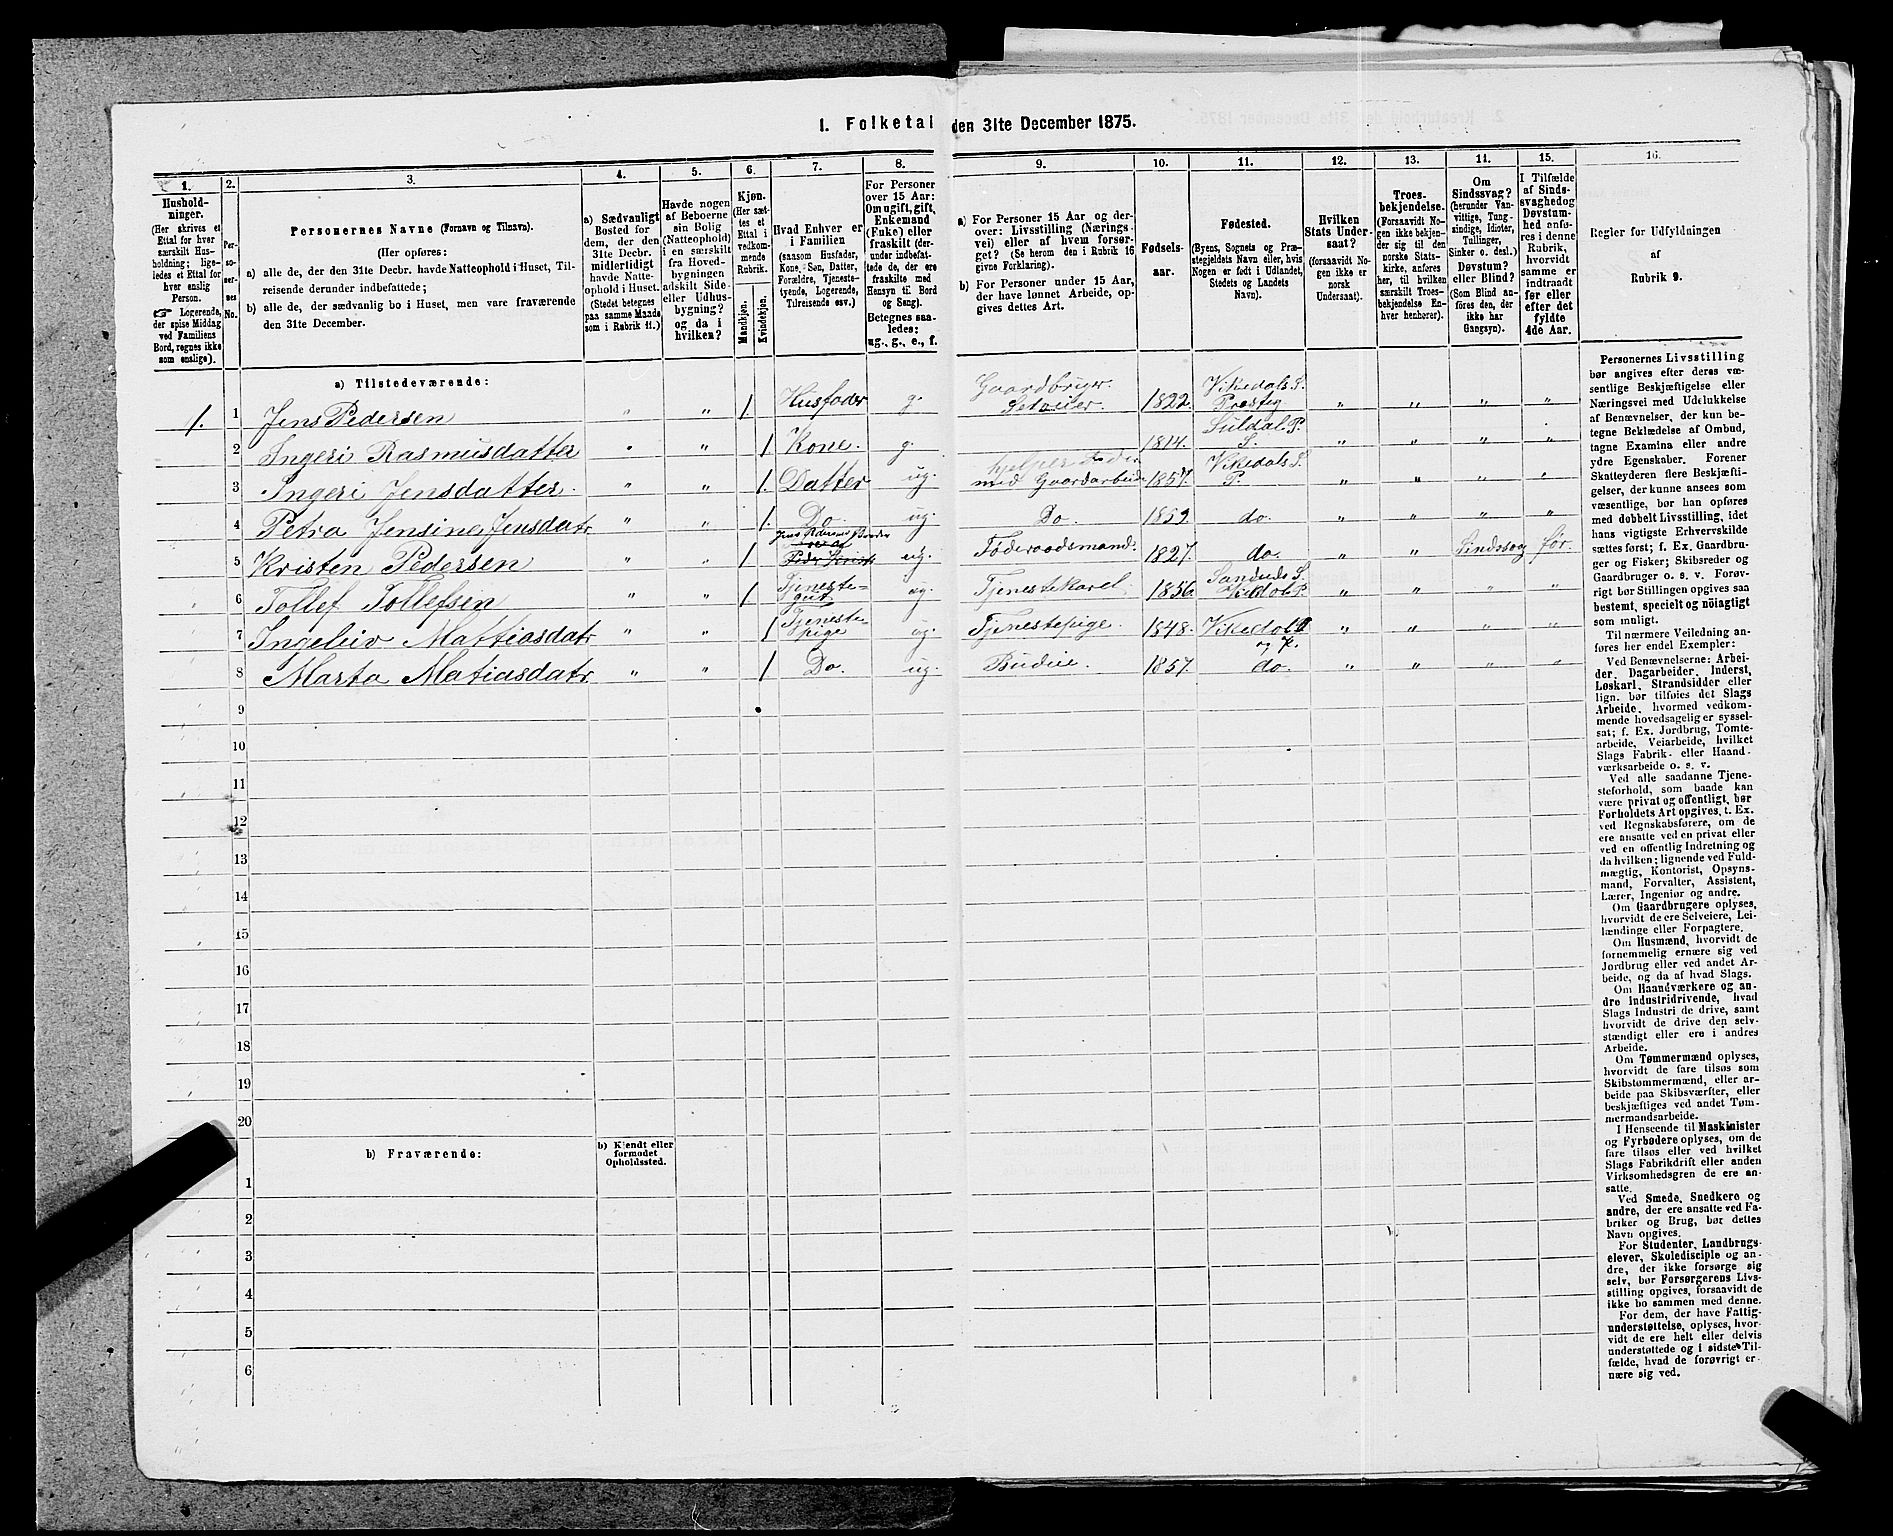 1. Folketal den 31te December 1875.
1. 2. 3. 4. 5. 6. 7. 8. 9. 10. 11. 12. 13. 11. 15. 16.
Hushold-
ninger.
(Her skrives et
Ettal for hver
særskilt Hus-
holdning; lige-
ledes et Ettal for
hver enslig
Person.
Logerende,
der spise Middag
ved Familiens
Bord, regnes ikke
som enslige).
Per-
so-
ner-
nes
No.
Personernes Navne (Fornavn og Tilnavn).
(Her opføres:
a) alle de, der den 31te Decbr. havde Natteophold i Huset, Til-
reisende derunder indbefattede;
b) alle de, der sædvanlig bo i Huset, men vare fraværende
den 31te December.
a) Sædvanligt
Bosted for
dem, der den
31te Decbr.
midlertidigt
havde Natte-
ophold i Huset.
(Stedet betegnes
paa samme Maade
som i Rubrik 11.)
Havde nogen
af Beboerne
sin Bolig
(Natteophold)
i en særskilt
fra Hoved-
bygningen
adskilt Side-
eller Udhus-
bygning?
og da i
hvilken?
Kjøn.
(Her sæt-
tes et
Ettal i
vedkom-
mende
Rubrik.
Mandkjøn.
Kvindekjøn.
Hvad Enhver er
i Familien
(saasom Husfader,
Kone, Søn, Datter,
Forældre, Tjeneste-
tyende, Logerende,
Tilreisende osv.)
For Personer
over 15 Aar:
Om ugift, gift,
Enkemand
(Enke) eller
fraskilt (der-
under indbefat-
tede de, der ere
fraskilte med
Hensyn til Bord
og Seng).
Betegnes saa-
ledes:
ug., g., e., f.
a) For Personer 15 Aar og der-
over: Livsstilling (Nærings-
vei) eller af hvem forsør-
get? (Se herom den i Rubrik 16
givne Forklaring).
b) For Personer under 15 Aar,
der have lønnet Arbeide, op-
gives dettes Art.
Fødsels-
aar.
Fødested.
(Byens, Sognets og Præ-
stegjeldets Navn eller, hvis
Nogen er født i Udlandet,
Stedets og Landets
Navn).
Hvilken
Stats Under-
saat?
(forsaavidt No-
gen ikke er
norsk
Undersaat).
Troes-
bekjendelse.
(Forsaavidt No-
gen ikke bekjen-
der sig til den
norske Stats-
kirke, anføres
her, til hvilken
særskilt Troes-
bekjendelse En-
hver henhører).
Om
Sindssvag?
(herunder Van-
vittige, Tung-
sindige, Idioter,
Tullinger,
Sinker o. desl.)
Døvstum?
eller Blind?
(Som Blind an-
føres den, der
ikke har
Gangsyn).
I Tilfælde
af Sinds-
svaghed og
Døvstum-
hed anfø-
res i denne
Rubrik,
hvorvidt
samme er
indtraadt
før eller
efter det
fyldte
4de Aar.
Regler for Udfyldningen
af
Rubrik 9.
a) Tilstedeværende:
1. 1 Jens Pedersen " " 1 Husfader g. Gaardbruger Selveier. 1822 Vikedals S. Presteg " " " "
2 Ingeri Rasmusdatter " " 1 Kone. g. 1814. Suldal P. S. " " " "
3 Ingeri Jensdatter. " " 1. Datter ug. hjelper med Gaardarbeide 1857. Vikedals S. P. " " " "
4 Petra Jensine Jensdatr " " 1. Do. ug. Do. 1859. do. " " " "
5 Kristen Pedersen " " 1 Broder ug. Føderaadsmand. 1827. do. " " Sindssvag før.
6 Tollef Tollefsen " " 1 Tjeneste-gut ug. Tjenestekarel. 1856. Sandeids S. Vikedal P. " " " "
7 Ingeleiv Mattiasdatr " " 1 Tjeneste-pige ug. Tjenestepige. 1848. Vikedal S og P. " " " "
8 Marta Matiasdatr " " 1 Do. ug. Budeie. 1857. do. " " " "
9
10
11
12
13
14
15
16
17
18
19
20
b) Fraværende:
b) Kjendt eller
formodet
Opholdssted.
1
2
3
4
5
6
Personernes Livsstilling
bør angives efter deres væ-
sentlige Beskjæftigelse eller
Næringsvei med Udelukkelse
af Benævnelser, der kun be-
tegne Beklædelse af Ombud,
tagne Examina eller andre
ydre Egenskaber. Forener
Skatteyderen flere Beskjæfti-
gelser, der kunne ansees som
væsentlige, bør han opføres
med dobbelt Livsstilling, idet
hans vigtigste Erhvervskilde
sættes først; f. Ex. Gaardbru-
ger og Fisker; Skibsreder og
Gaardbruger o. s. v. Forøv-
rigt bør Stillingen opgives saa
bestemt, specielt og nøiagtigt
som muligt.
Til nærmere Veiledning an-
føres her endel Exempler:
Ved Benævnelserne: Arbei-
der, Dagarbeider, Inderst,
Løskarl, Strandsidder eller
lign. bør tilføies det Slags
Arbeide, hvormed vedkom-
mende hovedsagelig er syssel-
sat; f. Ex. Jordbrug, Tomte-
arbeide, Veiarbeide, hvilket
Slags Fabrik- eller Haand-
værksarbeide o. s. v.
Ved alle saadanne Tjene-
steforhold, som baade kan
være privat og offentligt, bør
Forholdets Art opgives, t. Ex.
ved Regnskabsførere, om de
ere ansatte ved en privat eller
ved en offentlig Indretning og
da hvilken; lignende ved Fuld-
mægtig, Kontorist, Opsyns-
mand, Forvalter, Assistent,
Lærer, Ingeniør og andre.
Om Gaardbrugere oplyses,
hvorvidt de ere Selveiere, Lei-
lændinge eller Forpagtere.
Om Husmænd, hvorvidt de
fornemmelig ernære sig ved
Jordbrug eller ved andet Ar-
beide, og da af hvad Slags.
Om Haandværkere og an-
dre Industridrivende, hvad
Slags Industri de drive, samt
hvorvidt de drive den selv-
stændigt eller ere i andres
Arbeide.
Om Tømmermænd oplyses,
hvorvidt de fare tilsøs som
Skibstømmermænd, eller ar-
beide paa Skibsværfter, eller
beskjæftiges ved andet Tøm-
mermandsarbeide.
I Henseende til Maskinister
og Fyrbødere oplyses, om de
fare tilsøs eller ved hvilket
Slags Fabrikdrift eller anden
Virksomhedsgren de ere an-
satte.
Ved Smede, Snedkere og
andre, der ere ansatte ved Fa-
briker og Brug, bør dettes
Navn opgives.
For Studenter, Landbrugs-
elever, Skoledisciple og an-
dre, der ikke forsørge sig
selv, bør Forsørgerens Livs-
stilling opgives, forsaavidt de
ikke bo sammen med denne.
For dem, der have Fattig-
understøttelse, oplyses, hvor-
vidt de ere helt eller delvis
understøttede og i sidste Til-
fælde, hvad de forøvrigt er-
nære sig ved.